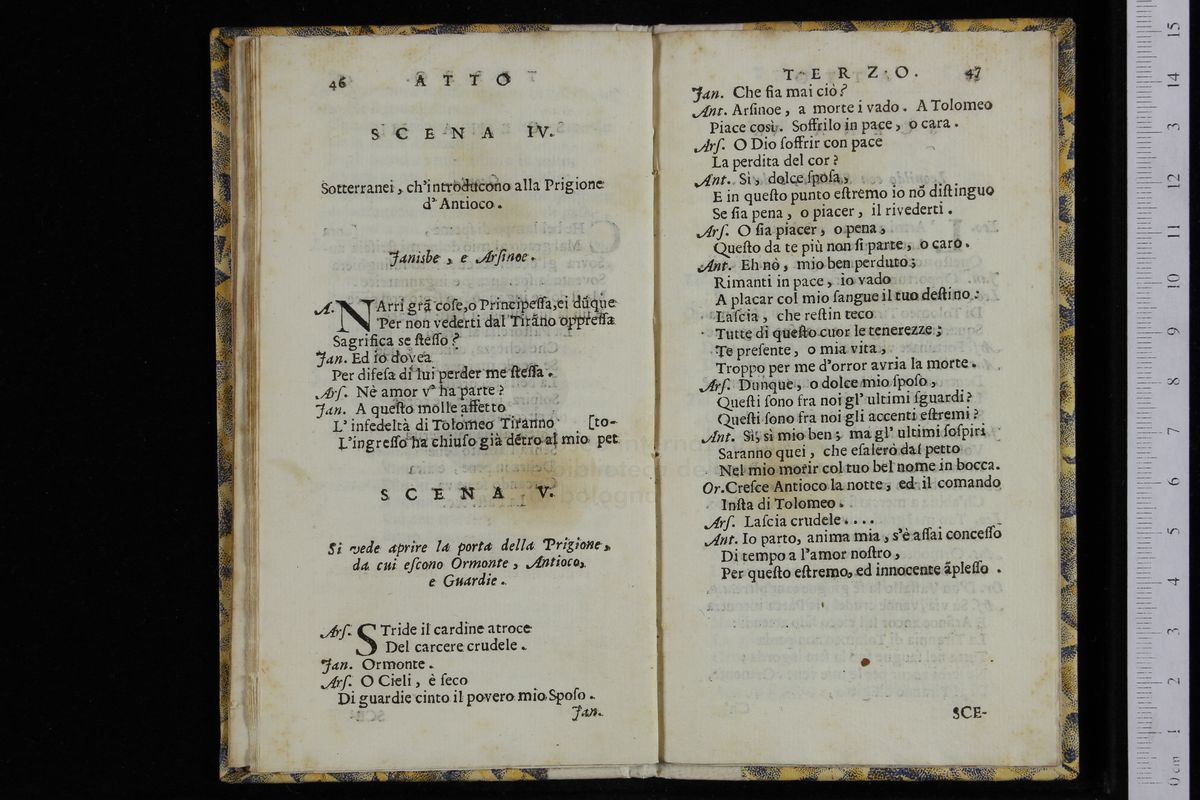 46 ATTO
SCENA IV.
Sotterranei, ch'introducono alla Prigione
d'Antioco.
Janisbe, e Arſinoe.
A. NArri grã coſe, o Principeſſa, ei dũque
Per non vederti dal Tirãno oppreſſa
Sagrifica se ſteſſo?
Jan. Ed io dovea
Per difeſa di lui perder me ſteſſa.
Arſ. Nè amor v' ha parte?
Jan. A queſto molle affetto
L' infedeltà di Tolomeo Tiranno [to-
L'ingreſſo ha chiuſo già dẽtro al mio pet
SCENA V.
Si vede aprire la porta della Prigione,
da cui eſcono Ormonte, Antioco,
e Guardie.
Arſ. STride il cardine atroce
Del carcere crudele.
Jan. Ormonte.
Arſ. O Cieli, è ſeco
Di guardie cinto il povero mio Spoſo.
Jan.
TERZO. 47
Jan. Che ſia mai ciò?
Ant. Arſinoe, a morte i vado. A Tolomeo
Piace così. Soffrilo in pace, o cara.
Arſ. O Dio ſoffrir con pace
La perdita del cor?
Ant. Sì, dolce ſpoſa,
E in queſto punto eſtremo io nõ diſtinguo
Se ſia pena, o piacer, il rivederti.
Arſ. O ſia piacer, o pena,
Queſto da te più non ſi parte, o caro.
Ant. Eh nò, mio ben perduto;
Rimanti in pace, io vado
A placar col mio ſangue il tuo deſtino:
Laſcia, che reſtin teco
Tutte di queſto cuor le tenerezze;
Te preſente, o mia vita,
Troppo per me d'orror avria la morte.
Arſ. Dunque, o dolce mio ſpoſo,
Queſti ſono fra noi gl' ultimi ſguardi?
Queſti ſono fra noi gli accenti eſtremi?
Ant. Sì, sì mio ben; ma gl' ultimi ſoſpiri
Saranno quei, che eſalerò dal petto
Nel mio morir col tuo bel nome in bocca.
Or. Creſce Antioco la notte, ed il comando
Inſta di Tolomeo.
Arſ. Laſcia crudele....
Ant. Io parto, anima mia, s'è aſſai conceſſo
Di tempo a l'amor noſtro,
Per queſto eſtremo, ed innocente ãpleſſo.
SCE-